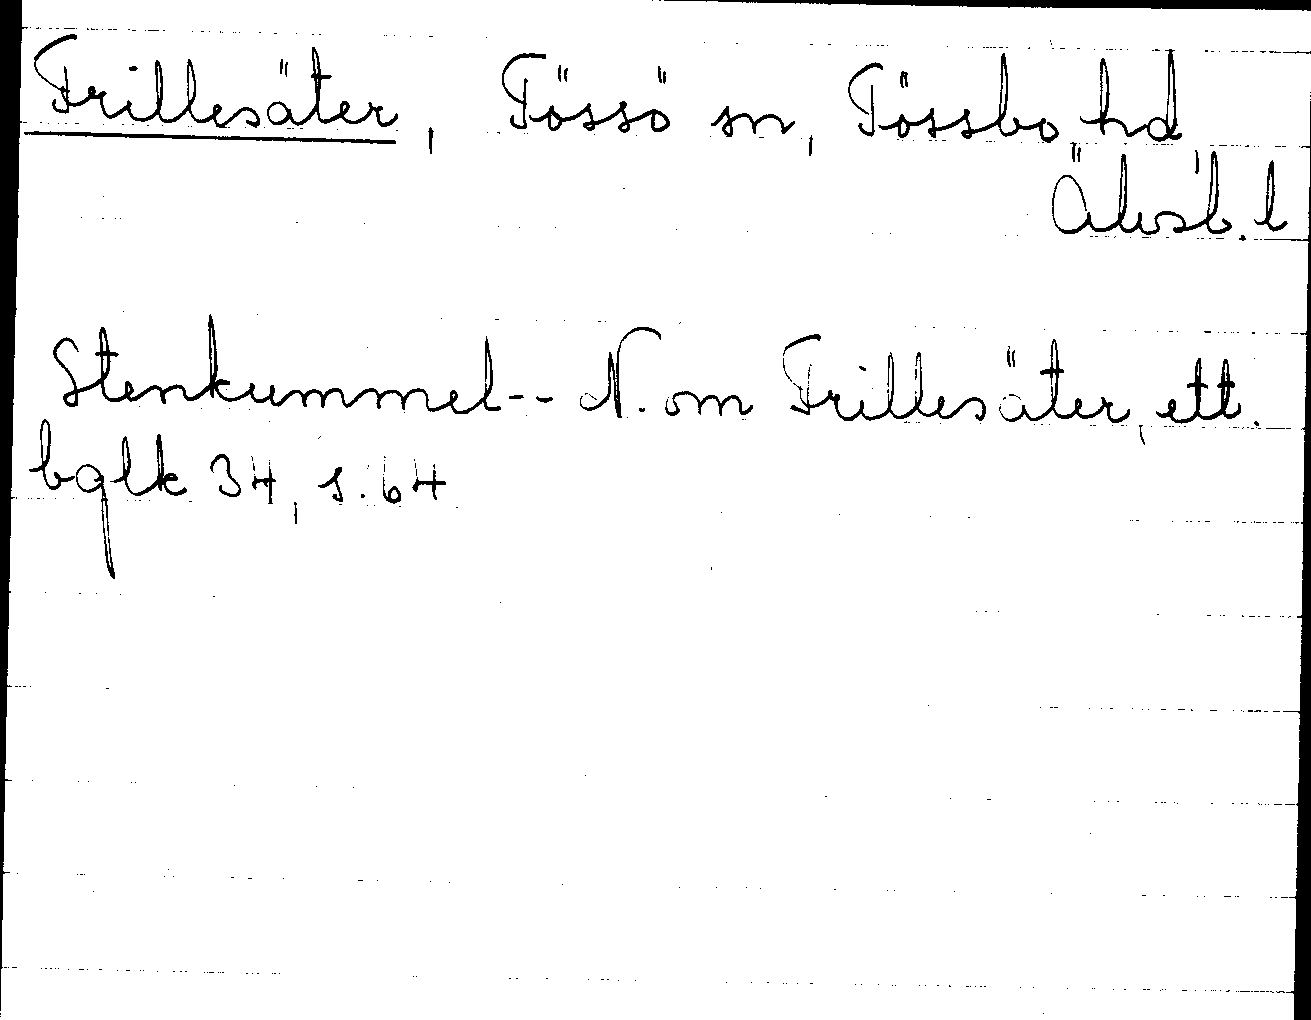 Trillesäter, Tössö sn, Tössbo hd
Älvsb. l
Stenkummel-- N. om Trillesäter, ett.
bglk 34, s. 64